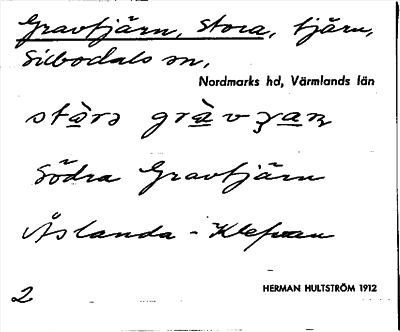 Gravtjärn, Stora, tjärn,
Silbodals sn,
Nordmarks hd, Värmlands län
Södra Gravtjärn
Åslanda - Klevan
HERMAN HULTSTRÖM 1912
2